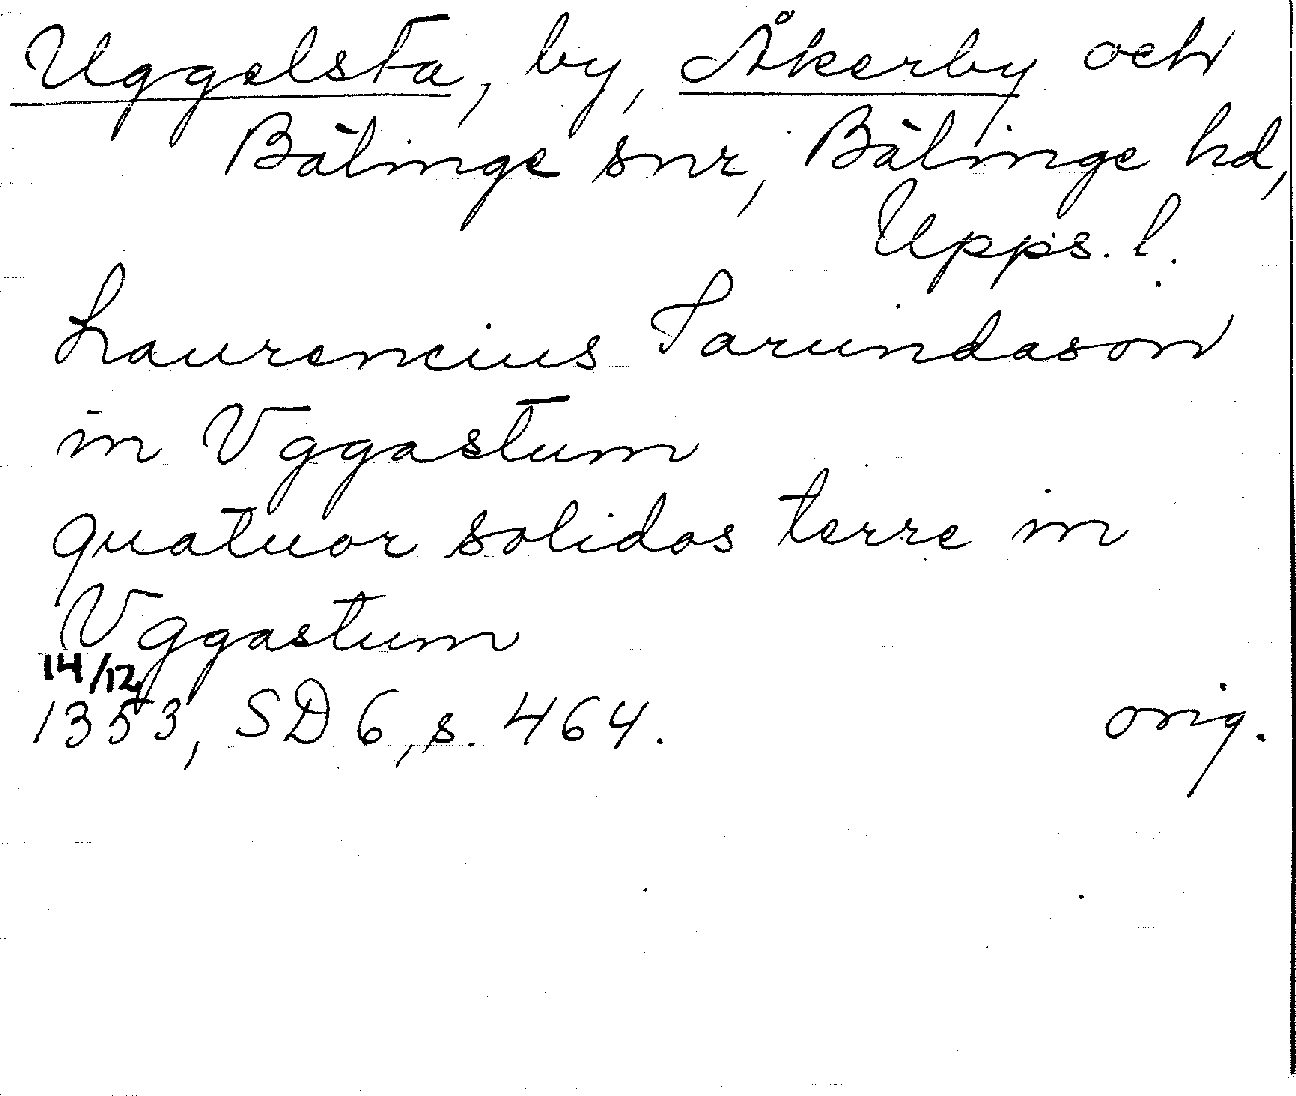 Uggelsta, by, Åkerby och
Bälinge snr, Bälinge hd,
Upps. l.
Laurencius Tarundason
in Vggastum
quatuor solidos terre in
Vggastum
14/12
1353, SD 6, s. 464. orig.